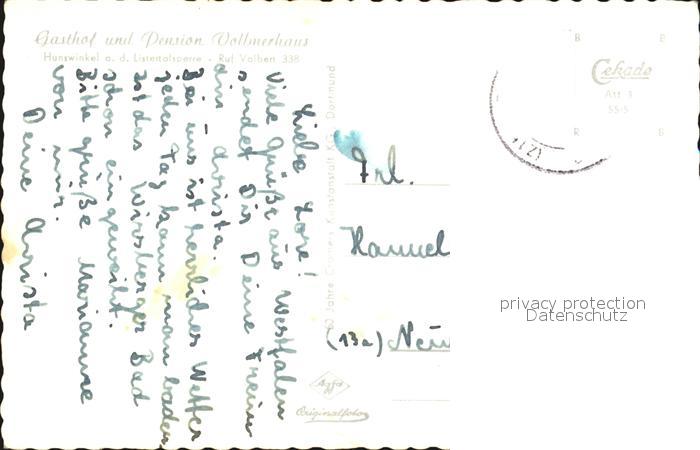 Gasthof und Pension Vollmerhaus
Hunswinkel a. d. Listertalsperre - Ruf Valbert 338
Liebe Lore!
Viele Grüße aus Westfalen
sendet Dir Deine Freun-
din Christa.
Bei uns ist herrliches Wetter
jeden Tag kann man baden
Ist das Wirsberger Bad
schon eingeweiht.
Bitte grüße Marianne
von mir.
Deine Christa
60 Jahre Cramers Kunstanstalt KG. Dortmund
Frl.
(13a) Neu
Agfa
Originalfoto
Cekade
Att 3
55-5
B
B
R
R
privacy protection
Datenschutz